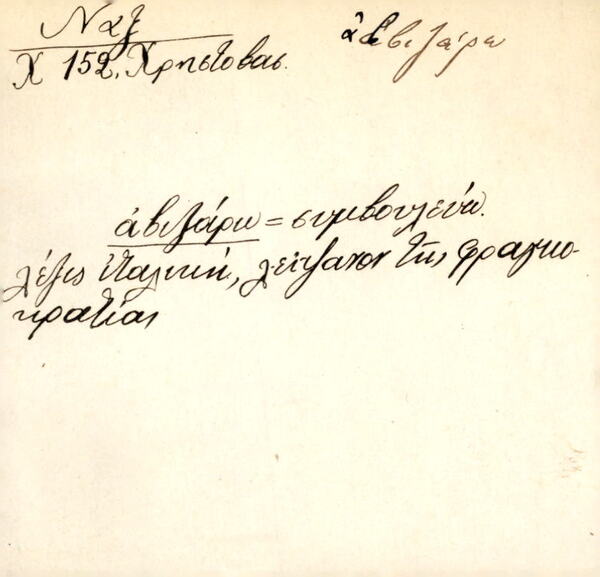 Ναξ ἀβιζάρω
Χ 152, Χρηστοβασ.
ἀβιζάρω = συμβουλεύω.
λέξις ἰταλική, λείψανον τῆς φραγκο-
κρατίας